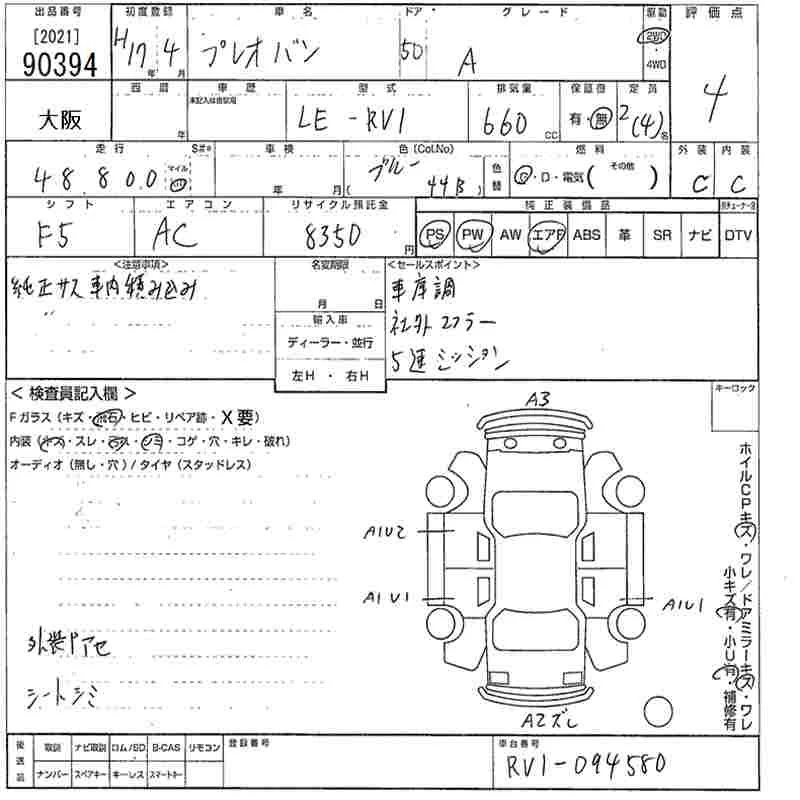 出品番号 初度登録 車名 ドア グレード 駆動 評価点
[2021] 90394 H17 年 4 月 プレオバン 50 A 2WD・4WD 4
大阪 西暦 年 車歴 型式 LE-RV1 排気量 660 CC 保証書 有・無 定員 2(4)名
走行 S#* 車検 色(Col.No) 燃料 外装 内装
48800 マイル 年 月 ブルー ( 44B ) 色替 G・D・電気( その他 ) C C
シフト エアコン リサイクル預託金 純正装備品
F5 AC 8350 円 PS PW AW エアB ABS 革 SR ナビ DTV
<注意事項> 名変期限 <セールスポイント>
純正サス車内積み込み 月 日 車庫調
〃 輸入車 社外マフラー
ディーラー・並行 5速ミッション
左H ・ 右H
< 検査員記入欄 > キーロック
Fガラス(キズ・飛石・ヒビ・リペア跡・X要)
内装(キズ・スレ・シミ・コゲ・穴・キレ・破れ)
オーディオ(無し・穴)/タイヤ(スタッドレス)
A3
A1U2
A1U1 A1U1
A2ズレ
ホイルCPキズ・ワレ/ドアミラーキズ・ワレ
小キズ有・小U有・補修有
外装アセ
シートシミ
後送品 取説 ナビ取説 ロム/SD B-CAS リモコン 登録番号 車台番号
ナンバー スペアキー キーレス スマートキー RV1-094580